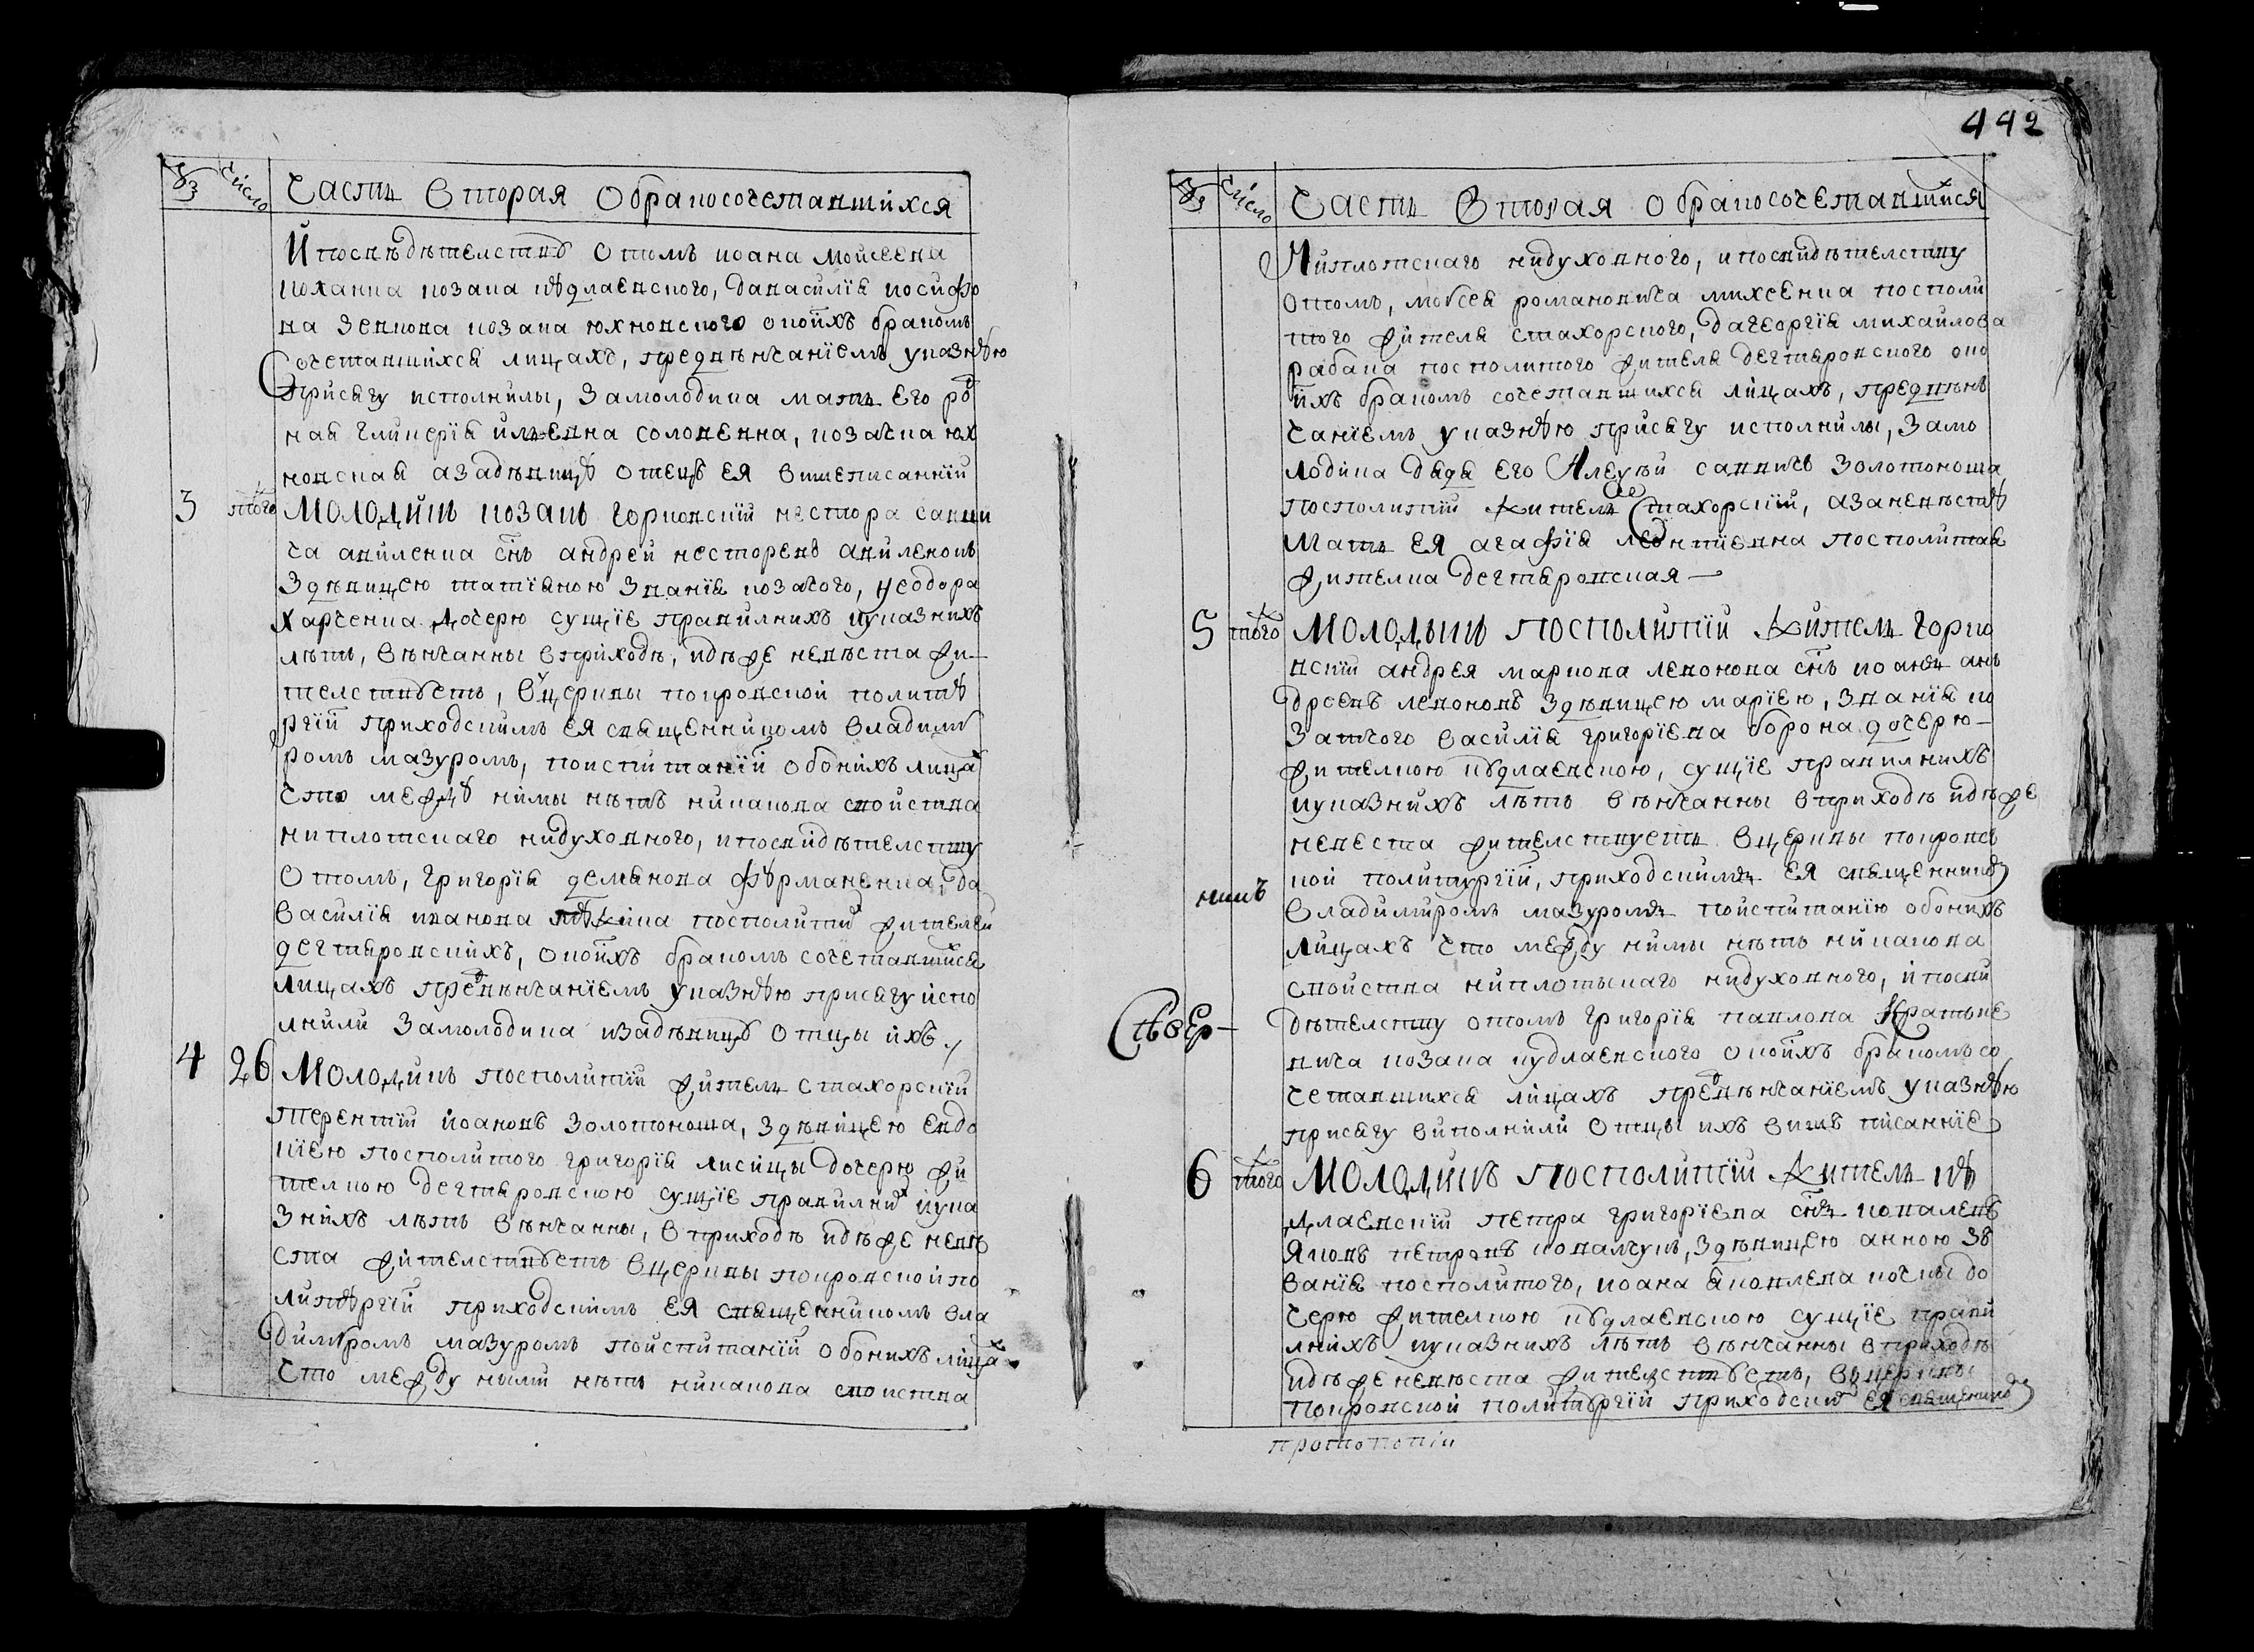 Часть вторая о бракосочетавшихся
И по свѣдѣтелству о томъ иоана моисеева
козака кудлаевского, да василія иосифо
ва зевкова козака юхновского о коихъ бракомъ
сочетавшихся лицахъ, предвѣнчаніемъ указную
присягу исполнилы, за молодика мать его ро
ная гликерія ильевна соловевна, козачка юх
новская а за дѣвицу отецъ ея вишеписанній
3 того Молодикъ козакъ горковскій нестора савви
ча авиленка снъ андрей нестеровъ
з дѣвицею татіяною званія козачого, феодора
харченка дочерю сущіе правилнихъ и указнихъ
лѣтъ, вѣнчанны в приходѣ, идѣже невѣста жи
телствуетъ, в церквы покровской по литу
ргіи приходскимъ ея священникомъ владими
ромъ мазуромъ, по испитаніи обоихъ лица
что между нимы нѣтъ никакова свойства
ни плотскаго ни духовного, и по свидѣтелству
о томъ, григорія демянова фурманенка, да
василія иванова посполити жителей
дегтяровскихъ, о коихъ бракомъ сочетавшихся
лицахъ предвѣнчаніемъ указную присягу испо
лнили за молодика и за дѣвицу отцы ихъ
4 26 Молодикъ посполитій житель стахорскій
терентій иоановъ золотоноша, з дѣвицею евдо
кіею посполитого григорія лисицы дочерю жи
телкою дегтяровскою сущіе правилни и ука
знихъ лѣтъ вѣнчанны, в приходѣ идѣже невѣ
ста жителствуетъ в церквы покровской по
литургіи приходскимъ ея священникомъ вла
димиромъ мазуромъ по испитаніи обоихъ лица
что между ными нѣтъ никакова свойства
442
Часть вторая о бракосочетавшися
Ни плотскаго ни духовного, и по свидѣтелству
о томъ, моисея романовича михеенка посполи
того жителя стахорского, да георгія михаилова
рабана посполитого жителя дегтяровского о ко
ихъ бракомъ сочетавшихся лицахъ, предвѣн
чаніемъ указную присягу исполнилы, за мо
лодика дядя его Алеѯѣй саввичъ золотоноша
посполитій житель стахорскій, а за невѣсту
мать ея агафія леонтіевна посполитая
жителка дегтяровская
5 того Молодыкъ посполитій житель горко
вскій андрея маркова левонова снъ иоанъ ан
дреевъ левоновъ з дѣвицею маріею, званія ко
зачого василія григоріева ворона дочерю
жителкою кудлаевскою, сущіе правилнихъ
и указнихъ лѣтъ вѣнчанны в приходѣ идѣже
невеста жителствуетъ в церквы покровс
кой по литургіи, приходскимъ ея священнико
владимиромъ мазуромъ по испитанію обоихъ
лицахъ что между нимы нѣтъ никакова
свойства ни плотьскаго ни духовного, и по сви
дѣтелству о томъ григорія павлова
вича козака кудлаевского о коихъ бракомъ со
четавшихся лицахъ предвѣнчаніемъ указную
присягу виполнили отцы ихъ више писанніе
6 того Молодикъ посполитій житель ку
длаевскій петра григоріева снъ
яковъ петровъ з дѣвицею анною зв
ванія посполитого, иоана дο
черю жителкою кудлаевскою сущіе прави
лнихъ и указнихъ лѣтъ вѣнчанны в приходѣ
идѣже невѣста жителствуетъ, в церквы
покровской по литургіи приходски ея священнико
протопопіи